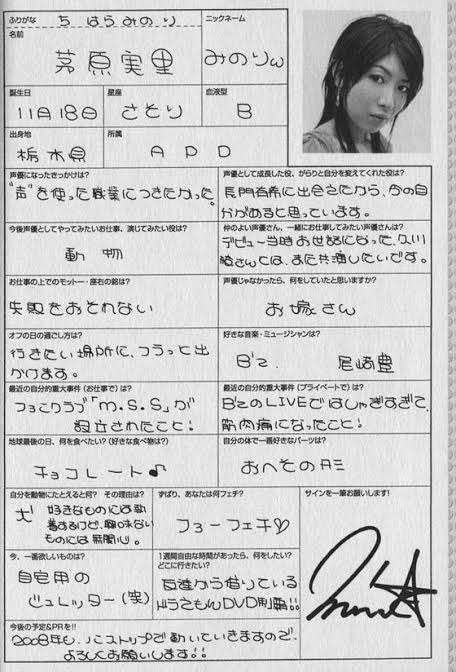 ふりがな
ちはらみのり
ニックネーム
名前
茅原実里
みのりん
誕生日
11月18日
星座
さそり
血液型
B
出身地
栃木県
所属
APD
声優になったきっかけは?
"声"を使った職業につきたかった。
声優として成長した役、がらりと自分を変えてくれた役は?
長門有希に出会えたから、今の自
分があると思っています。
今後声優としてやってみたいお仕事、演じてみたい役は?
動物
仲のよい声優さん、一緒にお仕事してみたい声優さんは?
デビュー当時お世話になった、久川
綾さんとは、また共演したいです。
お仕事の上でのモットー・座右の銘は?
失敗をおそれない
声優じゃなかったら、何をしていたと思いますか?
お嫁さん
オフの日の過ごし方は?
行きたい場所に、フラッと出
かけます。
好きな音楽・ミュージシャンは?
B'z. 尾崎豊
最近の自分的重大事件(お仕事で)は?
ファンクラブ「m.s.s」が
設立されたこと!
最近の自分的重大事件(プライベートで)は?
B'zのLIVEではしゃぎすぎて、
筋肉痛になったこと!
地球最後の日、何を食べたい?(好きな食べ物は?)
チョコレート♪
自分の体で一番好きなパーツは?
おへその形
自分を動物にたとえると何? その理由は?
犬 好きなものには執
着するけど、興味ない
ものには無関心。
ずばり、あなたは何フェチ?
フォーフェチ♡
サインを一筆お願いします!
今、一番欲しいものは?
自宅用の
ビュレッター(笑)
1週間自由な時間があったら、何をしたい?
どこに行きたい?
友達から借りている
ドラえもんDVD制覇!!
今後の予定&PRを!!
2008年も、ノンストップで動いていきますので、
よろしくお願いします!!